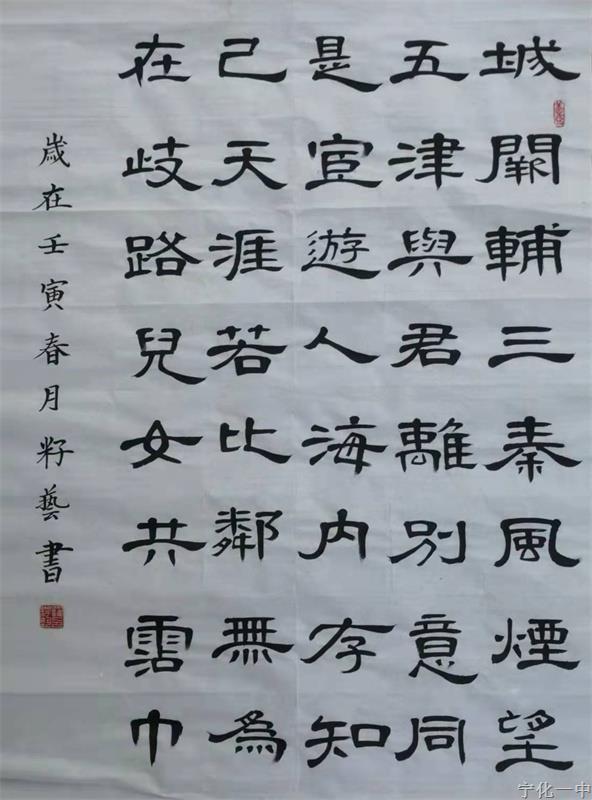 城闕輔三秦風煙望
五津與君離別意同
是宦遊人海內存知
己天涯若比鄰無為
在歧路兒女共霑巾
歲在壬寅春月籽藝書
宁化一中